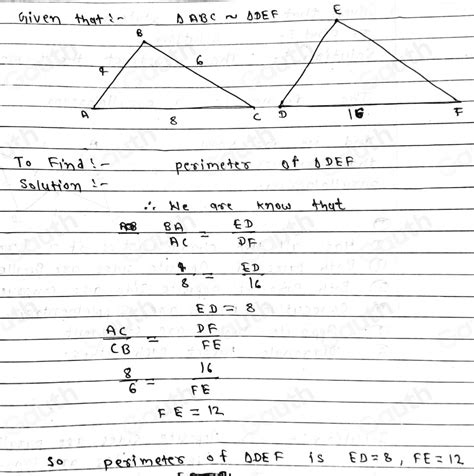 Given that :- △ABC ~ △DEF
E
B
4 6
A 8 C D 16 F
To Find :- perimeter of △DEF
Solution :-
∴ We are know that
BA/AC = ED/DF
4/8 = ED/16
ED = 8
AC/CB = DF/FE
8/6 = 16/FE
FE = 12
So perimeter of △DEF is ED=8, FE=12